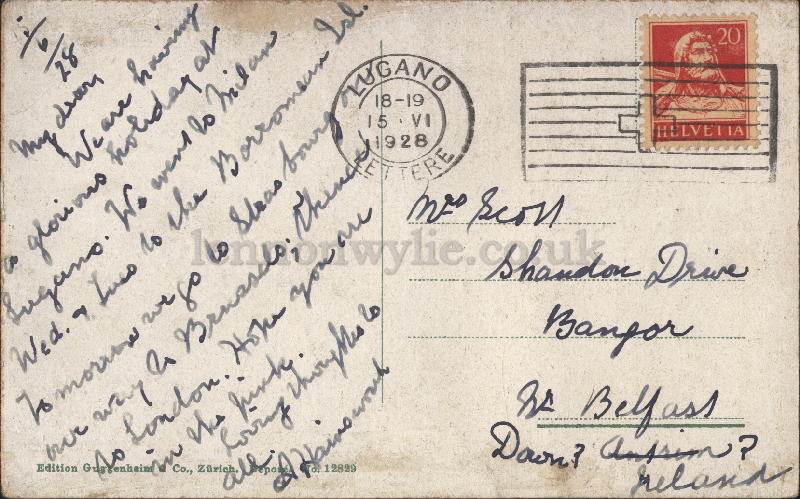 15/6/28
My dear,
We are having
a glorious holiday at
Lugano. We went to Milan
Wed. & Tues to the Borromean Isl.
Tomorrow we go to Strasbourg on
our way to Brussels; thence
to London. Hope you are
in the pink.
Loving thoughts to
all.
A Hainsworth
LUGANO
18-19
15 · VI
1928
LETTERE
20
HELVETIA
Mrs Scott
Shandon Drive
Bangor
Nr Belfast
Down? Antrim?
Ireland
lennonwylie.co.uk
Edition Guggenheim & Co., Zürich. Déposé. No. 12829